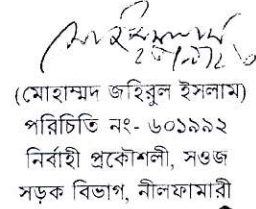 (মোহাম্মদ জহিরুল ইসলাম)
পরিচিতি নং- ৬০১৯৯২
নির্বাহী প্রকৌশলী, সওজ
সড়ক বিভাগ, নীলফামারী